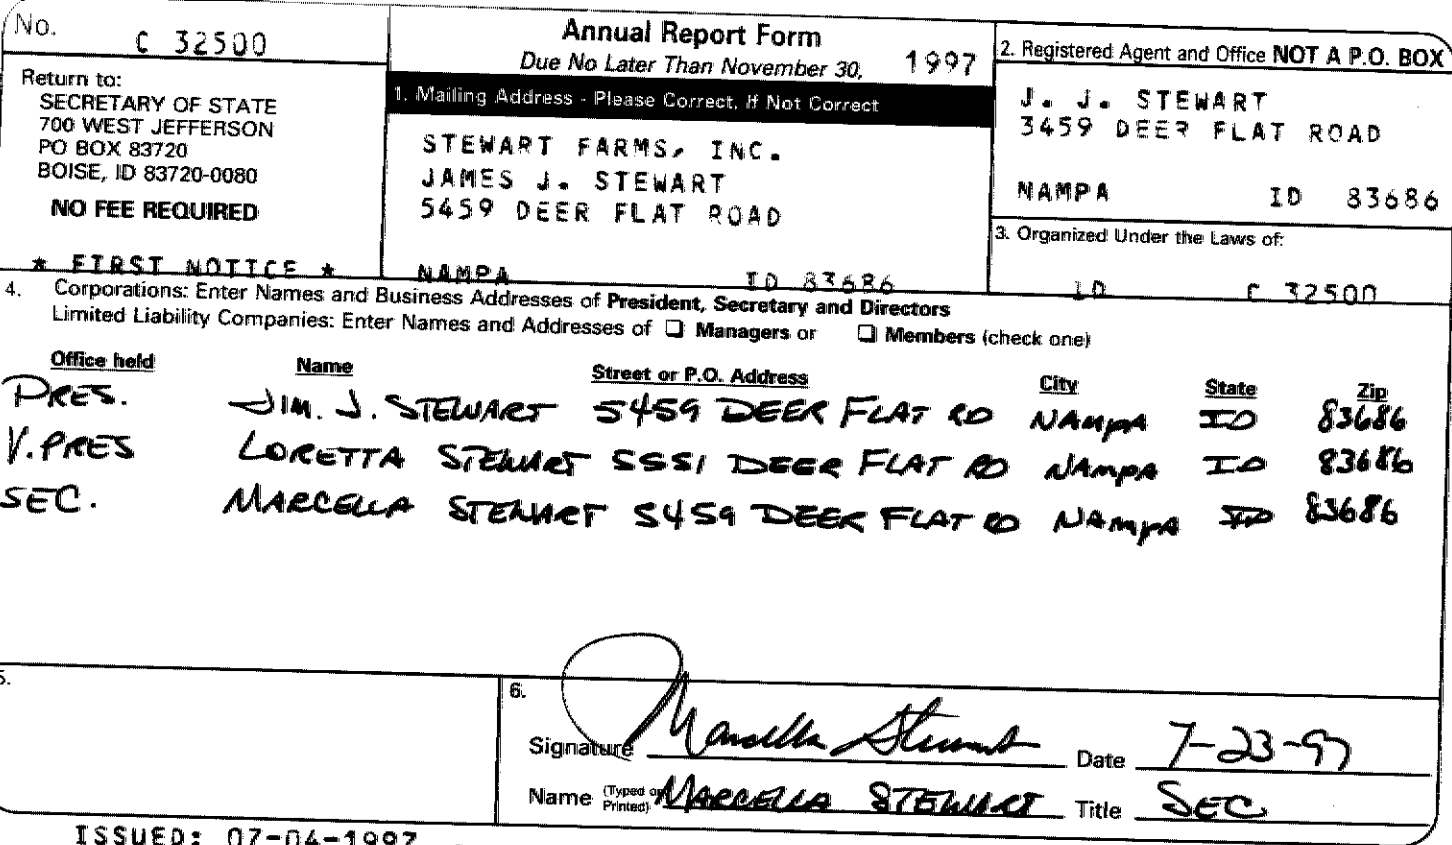 No. C 32500
Return to:
SECRETARY OF STATE
700 WEST JEFFERSON
PO BOX 83720
BOISE, ID 83720-0080
NO FEE REQUIRED
* FIRST NOTICE *
Annual Report Form
Due No Later Than November 30, 1997
1. Mailing Address - Please Correct, If Not Correct
STEWART FARMS, INC.
JAMES J. STEWART
5459 DEER FLAT ROAD
NAMPA ID 83686
2. Registered Agent and Office NOT A P.O. BOX
J. J. STEWART
3459 DEER FLAT ROAD
NAMPA ID 83686
3. Organized Under the Laws of:
ID C 32500
4. Corporations: Enter Names and Business Addresses of President, Secretary and Directors
Limited Liability Companies: Enter Names and Addresses of ❑ Managers or ❑ Members (check one)
Office held Name Street or P.O. Address City State Zip
PRES. JIM. J. STEWART 5459 DEER FLAT RD NAMPA ID 83686
V. PRES LORETTA STEWART 5551 DEER FLAT RD NAMPA ID 83686
SEC. MARCELLA STEWART 5459 DEER FLAT RD NAMPA ID 83686
5.
6.
Signature Marcella Stewart Date 7-23-97
Name (Typed or Printed) MARCELLA STEWART Title SEC.
ISSUED: 07-04-1997